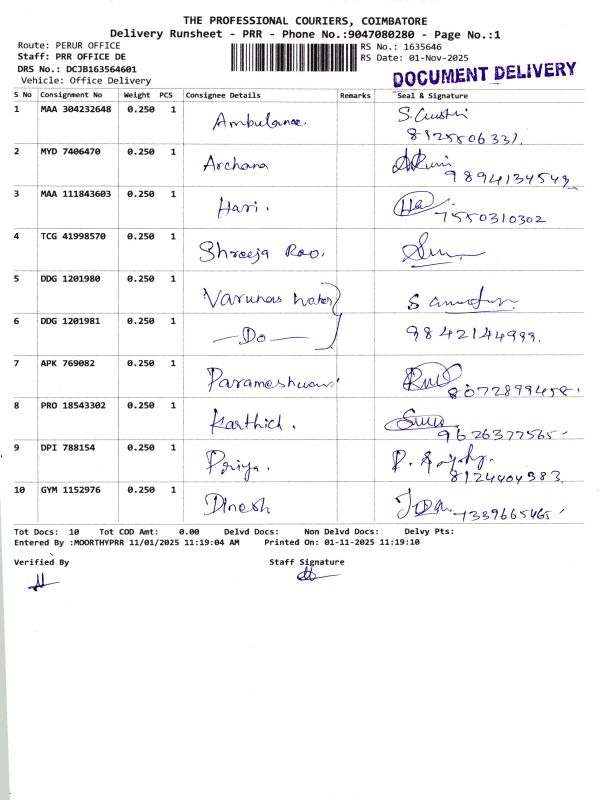 THE PROFESSIONAL COURIERS, COIMBATORE
Delivery Runsheet - PRR - Phone No.:9047080280 - Page No.:1
Route: PERUR OFFICE
RS No.: 1635646
Staff: PRR OFFICE DE
RS Date: 01-Nov-2025
DRS No.: DCJB163564601
Vehicle: Office Delivery
DOCUMENT DELIVERY
S No Consignment No Weight PCS Consignee Details Remarks Seal & Signature
1 MAA 304232648 0.250 1 Ambulance.
8125506331.
2 MYD 7406470 0.250 1 Archana
9894134549
3 MAA 111843603 0.250 1 Hari. Ha
7550310302
4 TCG 41998570 0.250 1 Shreeja Rao.
5 DDG 1201980 0.250 1 Varunas water S
6 DDG 1201981 0.250 1 —Do— 9842144999.
7 APK 769082 0.250 1 Parameshwari
8072899458.
8 PRO 18543302 0.250 1 Karthick.
9626377565.
9 DPI 788154 0.250 1 Priya. P.
8124404983.
10 GYM 1152976 0.250 1 Dinesh
7339665465
Tot Docs: 10 Tot COD Amt: 0.00 Delvd Docs: Non Delvd Docs: Delvy Pts:
Entered By :MOORTHYPRR 11/01/2025 11:19:04 AM Printed On: 01-11-2025 11:19:10
Verified By Staff Signature